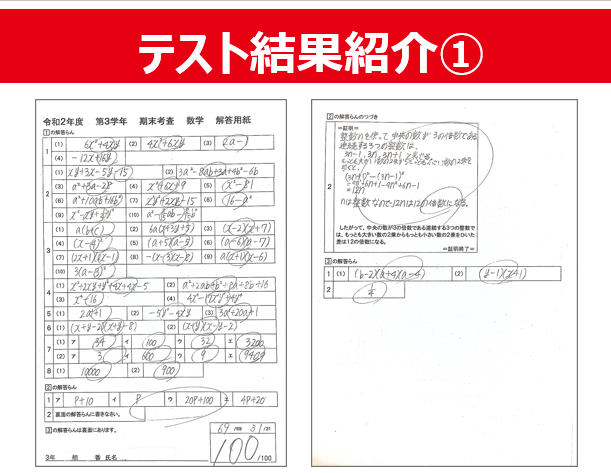 テスト結果紹介①
令和2年度 第3学年 期末考査 数学 解答用紙
1の解答らん
1 (1) 6x²+4xy (2) 4x²+6xy (3) 2a-1
(4) -12x+16y
2 (1) xy+3x-5y-15 (2) 3a²-8ab+3a+4b²-6b
(3) a²+3a-28 (4) x²+6x+9 (5)
(6) (7) (8) 16-a²
(9) (10)
3 (1) a(b-c) (2) 6a(x+3y+5) (3) (x-2)(x+7)
(4) (x-4)² (5) (a+5)(a-5) (6) (a-6)(a-7)
(7) (8) (9) a(x+1)(x-6)
(10) 3(a-3)²
4 (1) (2)
(3) x⁴-16 (4)
5 (1) 2a+1 (2) -5y²-4xy (3)
6 (1) (2)
7 (1) ア 34 イ 100 ウ 32 エ 3200
(2) ア 3 イ 600 ウ 9 エ 9409
8 (1) 10000 (2) 900
2の解答らん
1 ア P+10 イ P ウ 20P+100 エ 4P+20
2 裏面の解答らんに書きなさい。
3の解答らんは裏面にあります。
69 /69 31 /31
3年 組 番 氏名 100 /100
2の解答らんのつづき
2 =証明=
整数nを使って中央の数が3の倍数である
連続する3つの整数は、
3n-1, 3n, 3n+1 と表せる。
もっとも大きい数の2乗からもっとも小さい数の2乗を
引くと、
(3n+1)²-(3n-1)²
=9n²+6n+1-9n²+6n-1
=12n
nは整数なので12nは12の倍数になる。
したがって、中央の数が3の倍数である連続する3つの整数で
は、もっとも大きい数の2乗からもっとも小さい数の2乗をひいた
差は12の倍数になる。
=証明終了=
3の解答らん
1 (1) (b-2)(a+4)(a-4) (2) (y-1)(x+1)
2